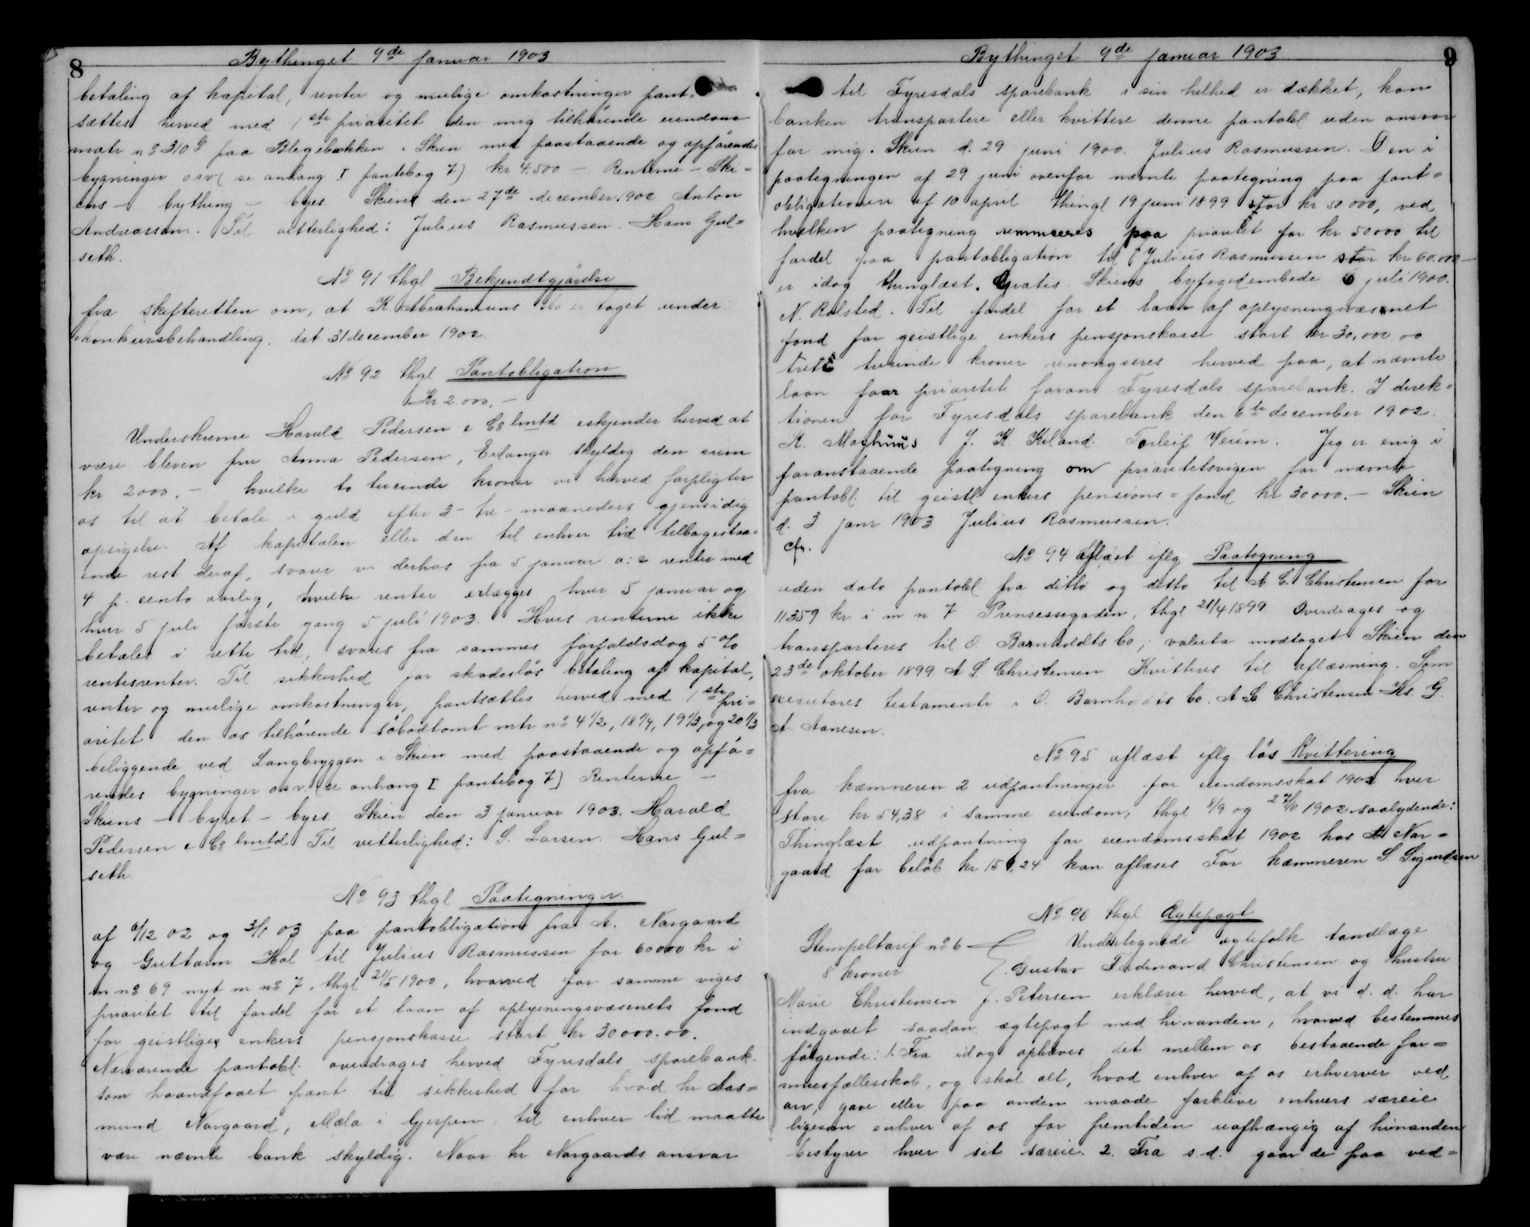 8
Bythinget 9de Januar 1903
betaling af kapital, renter og mulige omkostninger pant-
sættes herved med 1ste prioritet den mig tilhørende eiendom
matr nº 310 paa Blegebakken i Skien med paastaaende og opførendes
bygninger osv (se anhang I pantebog 7) kr 4.500 – Renterne – Ski=
ens – bything – byes Skien den 27de december 1902 Anton
Andreassen. Til vitterlighed: Julius Rasmussen. Hans Gul=
seth.
No 91 thgl Bekjendtgjørelse
fra skifteretten om, at K Abrahamsens bo er taget under
konkursbehandling. dat 31 december 1902
No 92 thgl Pantobligation
Kr 2000,-
Underskrevne Harald Pedersen & Co lmtd erkjender herved at
være bleven fru Anna Pedersen, Erlanger skyldig den sum
kr 2000,- hvilke to tusinde kroner vi herved forpligter
os til at betale i guld efter 3- tre- maaneders gjensidig
opsigelse. Af kapitalen eller den til enhver tid tilbagestaa-
ende rest deraf, svarer vi derhos fra 5 januar a: c renter med
4 p. cento aarlig, hvilke renter erlægges hver 5 januar og
hver 5 juli første gang 5 juli 1903. Hvis renterne ikke
betales i rette tid, svares fra sammes forfaldsdag 5 %
rentesrenter. Til sikkerhed for skadesløs betaling af kapital,
renter og mulige omkostninger, pantsættes herved med 1ste pri=
oritet den os tilhørende søbodtomt mtr nº 4 1/2, 18 1/4, 19 1/3, og 20 1/3
beliggende ved Langbryggen i Skien med paastaaende og opfø=
rendes bygninger osv. (se anhang I pantebog 7) Renterne –
Skiens – bythet – byes Skien den 3 januar 1903. Harald
Pedersen & Co lmtd Til vitterlighed: S. Larsen. Hans Gul=
seth.
No 93 thgl Paategninger
af 6/12 02 og 3/1 03 paa pantobligation fra A. Norgaard
og Guttorm Hol til Julius Rasmussen for 60000 kr i
m nº 69 nyt m nº 7. thgl 21/5 1900, hvorved for samme viges
prioritet til fordel for et laan af oplysningsvæsenets fond
for geistliges enkers pensjonskasse stort kr 30000.00.
Nærværende pantobl. overdrages herved Fyresdals sparebank
som haandfaaet pant til sikkerhed for hvad hr Aas=
mund Norgaard, Mæla i Gjerpen til enhver tid maatte
være nævnte bank skyldig. Naar hr Norgaards ansvar
9
Bythinget 9de januar 1903
til Fyresdals sparebank i sin helhed er dækket, kan
banken transportere eller kvittere denne pantobl uden ansvar
for mig. Skien d. 29 juni 1900. Julius Rasmussen. Den i
paategningen af 29 juni ovenfor nævnte paategning paa pant=
obligationen af 10 april thingl 19 juni 1899 stor kr 50 000, ved
hvilken paategning renunceres paa prioritet for kr 50000 til
fordel paa pantobligation til Julius Rasmussen stor kr 60.000 –
er idag thinglæst. Gratis. Skiens byfogedembede 6 juli 1900.
N. Rolsted. Til fordel for et laan af oplysningsvæsenet
fond for geistlige enkers pensjonskasse stort kr 30,000 00
treti tusinde kroner renonseres herved paa, at nævnte
laan faar prioritet foran Fyresdals sparebank. I direk=
tionen for Fyresdals sparebank den 6te december 1902.
A. Moghuus J. K. Kiland. Torleif Veum. Jeg er enig i
foranstaaende paategning om prioritetsvigen for nævnte
pantobl. til geistl enkers pensions-fond kr 30000.– Skien
d. 3 janr 1903 Julius Rasmussen.
cfr.
No 94 aflæst iflg Paategning
uden dato pantobl fra ditto og ditto til A C Christensen for
11359 kr i m n 7 Prinsessegaden, thgl 21/4 1899 Overdrages og
transporteres til O. Barnholdts bo, valuta modtaget Skien den
23de oktober 1899 A L Christensen Kvitteres til aflæsning. Som
executores testamenti i O. Barnholdts bo. A L Christensen Hs G.
A. Aanesen.
No 95 aflæst iflg. løs Kvittering
fra kæmneren 2 udpantninger for eiendomsskat 1902 hver
store kr 54,38 i samme eiendom, thgl 8/9 og 27/10 1902 saalydende:
Thinglæst udpantning for eiendomsskat 1902 hos A Nor=
gaard for beløb kr 151,24 kan aflæses For kæmneren S Sigurdsen
No 96 thgl Ægtepagt
Stempeltarif nº 6
8 kroner
Undertegnede ægtefolk tandlæge
Gustav Ferdinand Christensen og hustru
Marie Christensen f. Petersen erklærer herved, at vi d. d. har
indgaaet saadan ægtepagt med hinanden, hvorved bestemmes
følgende: 1. Fra idag ophæves det mellem os bestaaende for=
muesfællesskab, og skal alt, hvad enhver af os erhverver ved
arv, gave eller paa anden maade forblive enhvers særeie
ligesom enhver af os for fremtiden uafhængig af hinanden
bestyrer hver sit særeie. 2. Fra s.d. gaar de paa ved=